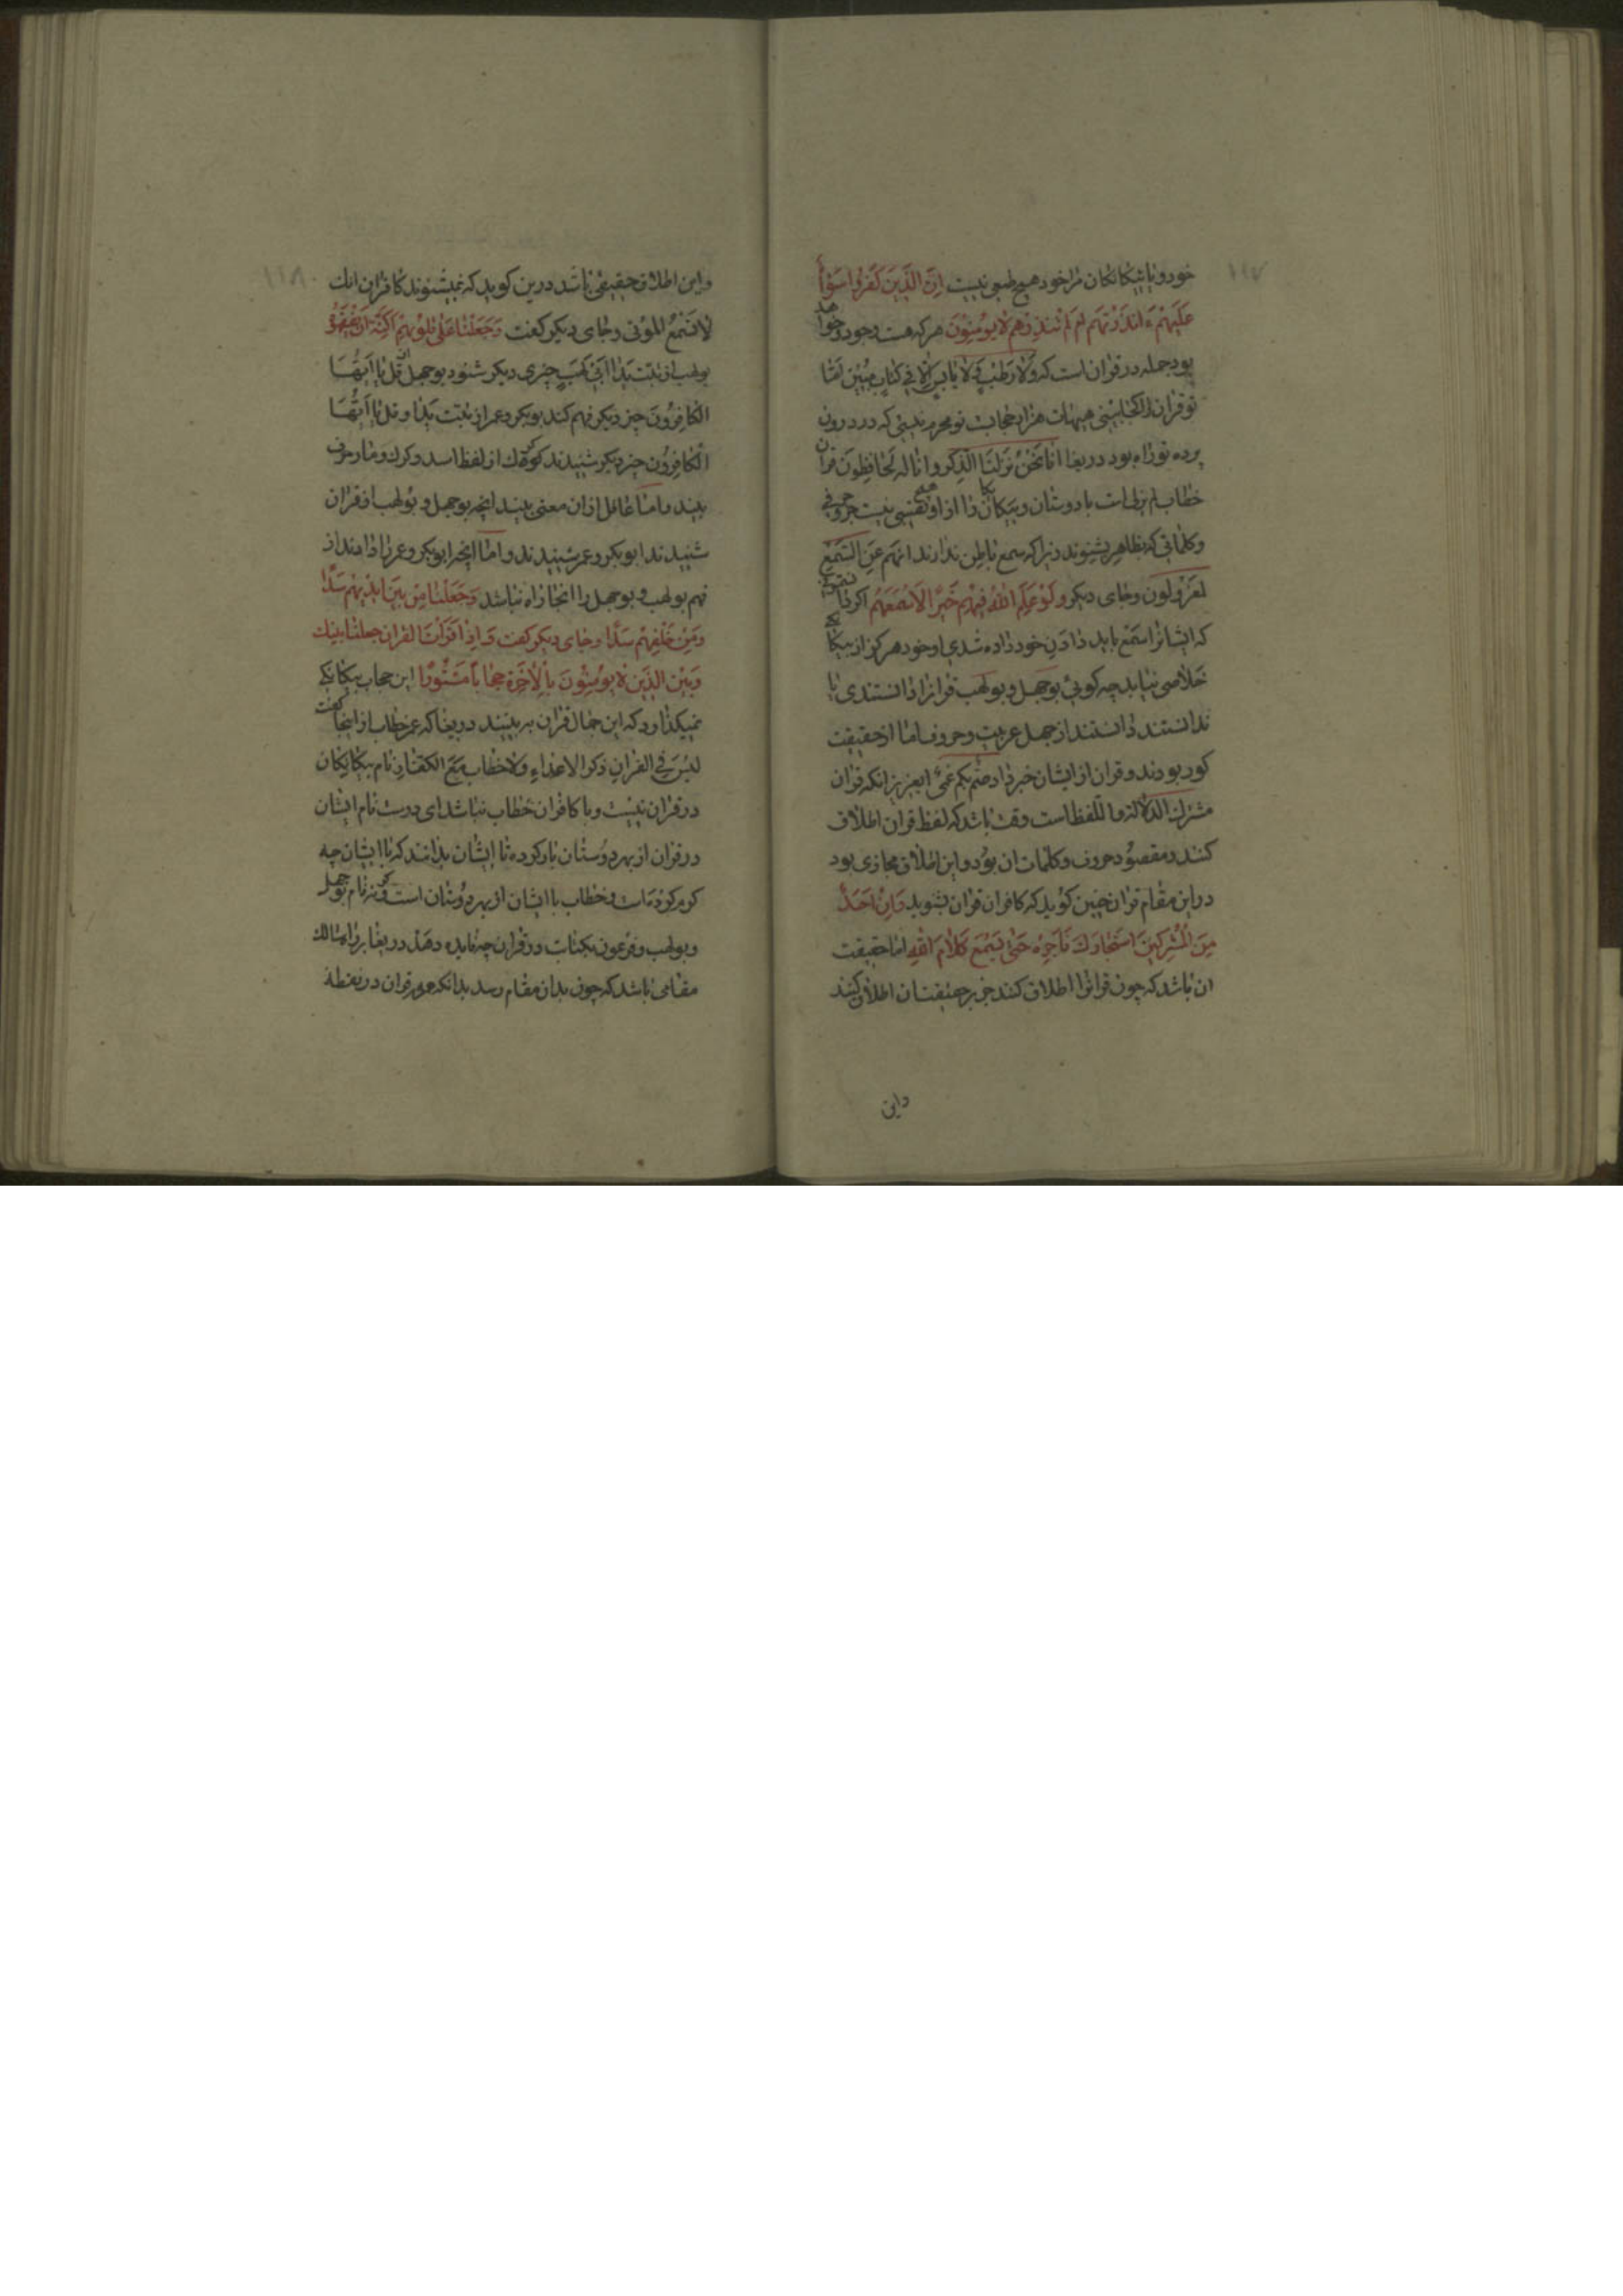 ۱۱۷
خود و با بیکانکان مرا خود هیچ طبعی نیست اِنَّ الَّذِینَ کَفَرُوا سَوٰٓاءٌ
عَلَیْهِمْ ءَاَنْذَرْتَهُم اَم لَمْ تُنْذِرْهُم لا یُؤمِنُونَ هر که هست و وجود خواهد
بود جمله در قرانست که وَلا رَطْبٍ وَلا یَابِسٍ اِلّا فِی کِتَابٍ مُبِینٍ اما
تو قران را کجا بینی هیهات هزار حجابست تو محرم نیستی که در درون
پرده ترا راه بود دریغا انا نَحْنُ نَزَّلْنَا الذِّکْرَ وانا له لَحَافِظُونَ قران
خطاب لم یزلی است با دوستان و بیکانکانرا ازاو هیچ نصیبی نیست جز حروفی
و کلماتی که بظاهر بشنوند زیرا که سمع باطن ندارند انهم عَنِ السَّمْعِ
لمعزولون و جای دیکر وَلَوْ عَلِمَ اللهُ فِیهِمْ خَیْرًا لَاَسْمَعَهُمْ اکر دانستمی
که ایشانرا سمع باید دادن خود داده شدی و خود هرکز از بیکانکی
خلاصی نیابد چه کوئی بوجهل و بولهب قرانرا دانستندی یا
ندانستند دانستند از جهل عربیت و حروف اما از حقیقت
کور بودند و قران از ایشان خبر داد صُمٌّ بکم عُمْیٌ ایعزیز بدانکه قران
مشترک الدلاله واللفظ است وقت باشد که لفظ قران اطلاق
کنند و مقصود حروف و کلمات ان بود و این اطلاق مجازی بود
در این مقام قران چنین کوید که کافران قران بشنوند وَاِنْ اَحَدٌ
مِنَ الْمُشْرِکِینَ اسْتَجَارَکَ فَاَجِرْهُ حَتّٰی یَسْمَعَ کَلامَ اللهِ اما حقیقت
ان باشد که چون قرانرا اطلاق کنند جز بر حقیقت ان اطلاق نکنند
واین
۱۱۸
واین اطلاق حقیقی باشد درین کوید که نمیشنوند کافران انک
لا تسمع الموتی و جای دیکر کفت وَجَعَلْنَا عَلٰی قُلُوبِهِمْ اَکِنَّةً اَنْ یَفْقَهُوهُ
بولهب از تبت یَدٰا اَبِی لَهَبٍ چیزی دیکر شنود بوجهل از قُل یٰا اَیُّهَا
الکَافِرُونَ چیز دیکر فهم کند بوبکر و عمر از تَبَّت یَدٰا و قل یٰا اَیُّهَا
الکَافِرُون چیز دیکر شنیدند کودک از لفظ اسد و کرک و مار حرف
بیند و اما عاقل ازان معنی بیند انچه بوجهل و بولهب از قران
شنیدند ابوبکر و عمر شنیدند و اما انچه ابوبکر و عمر را دادند از
فهم بولهب و بوجهل را انجا راه نباشد وَجَعَلْنَا مِنْ بَیْنِ اَیْدِیهِمْ سَدًّا
وَمِنْ خَلْفِهِمْ سَدًّا و جای دیکر کفت وَاِذَا قَرَأْتَ القران جعلنا بینک
وَبَیْنَ الَّذِینَ لا یُؤمِنُونَ بِالْآخِرَةِ حِجَابًا مَسْتُورًا این حجاب بیکانکی
نمیکذارد که این جمال قران به بینند دریغا که عمر خطاب از اینجا کفت
لیسَ فی القران ذکر الاعداءِ ولا خطاب مَعَ الکفارِ نام بیکانکان
در قران نیست و با کافران خطاب نباشد ای دوست نام ایشان
در قران از بهر دوستان یاد کرده تا ایشان بدانند که با ایشان چه
کرم کرده است و خطاب با ایشان از بهر دوستان است وکرنه نام بوجهل
و بولهب و فرعون نکبات در قران چه فایده دهد دریغا برای سالک
مقامی باشد که چون بدان مقام رسد بدانکه همه قران در نقطهٔ